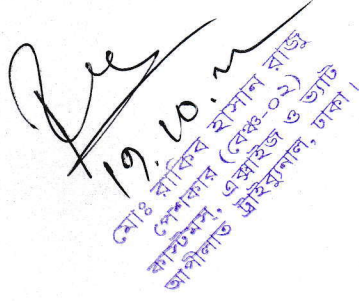 ১৭.১০.২
মোঃ রাকিব হাসান রাজু
পেশকার (বেঞ্চ-০২)
কাস্টমস, এক্সাইজ ও ভ্যাট
আপীলাত ট্রাইব্যুনাল, ঢাকা।